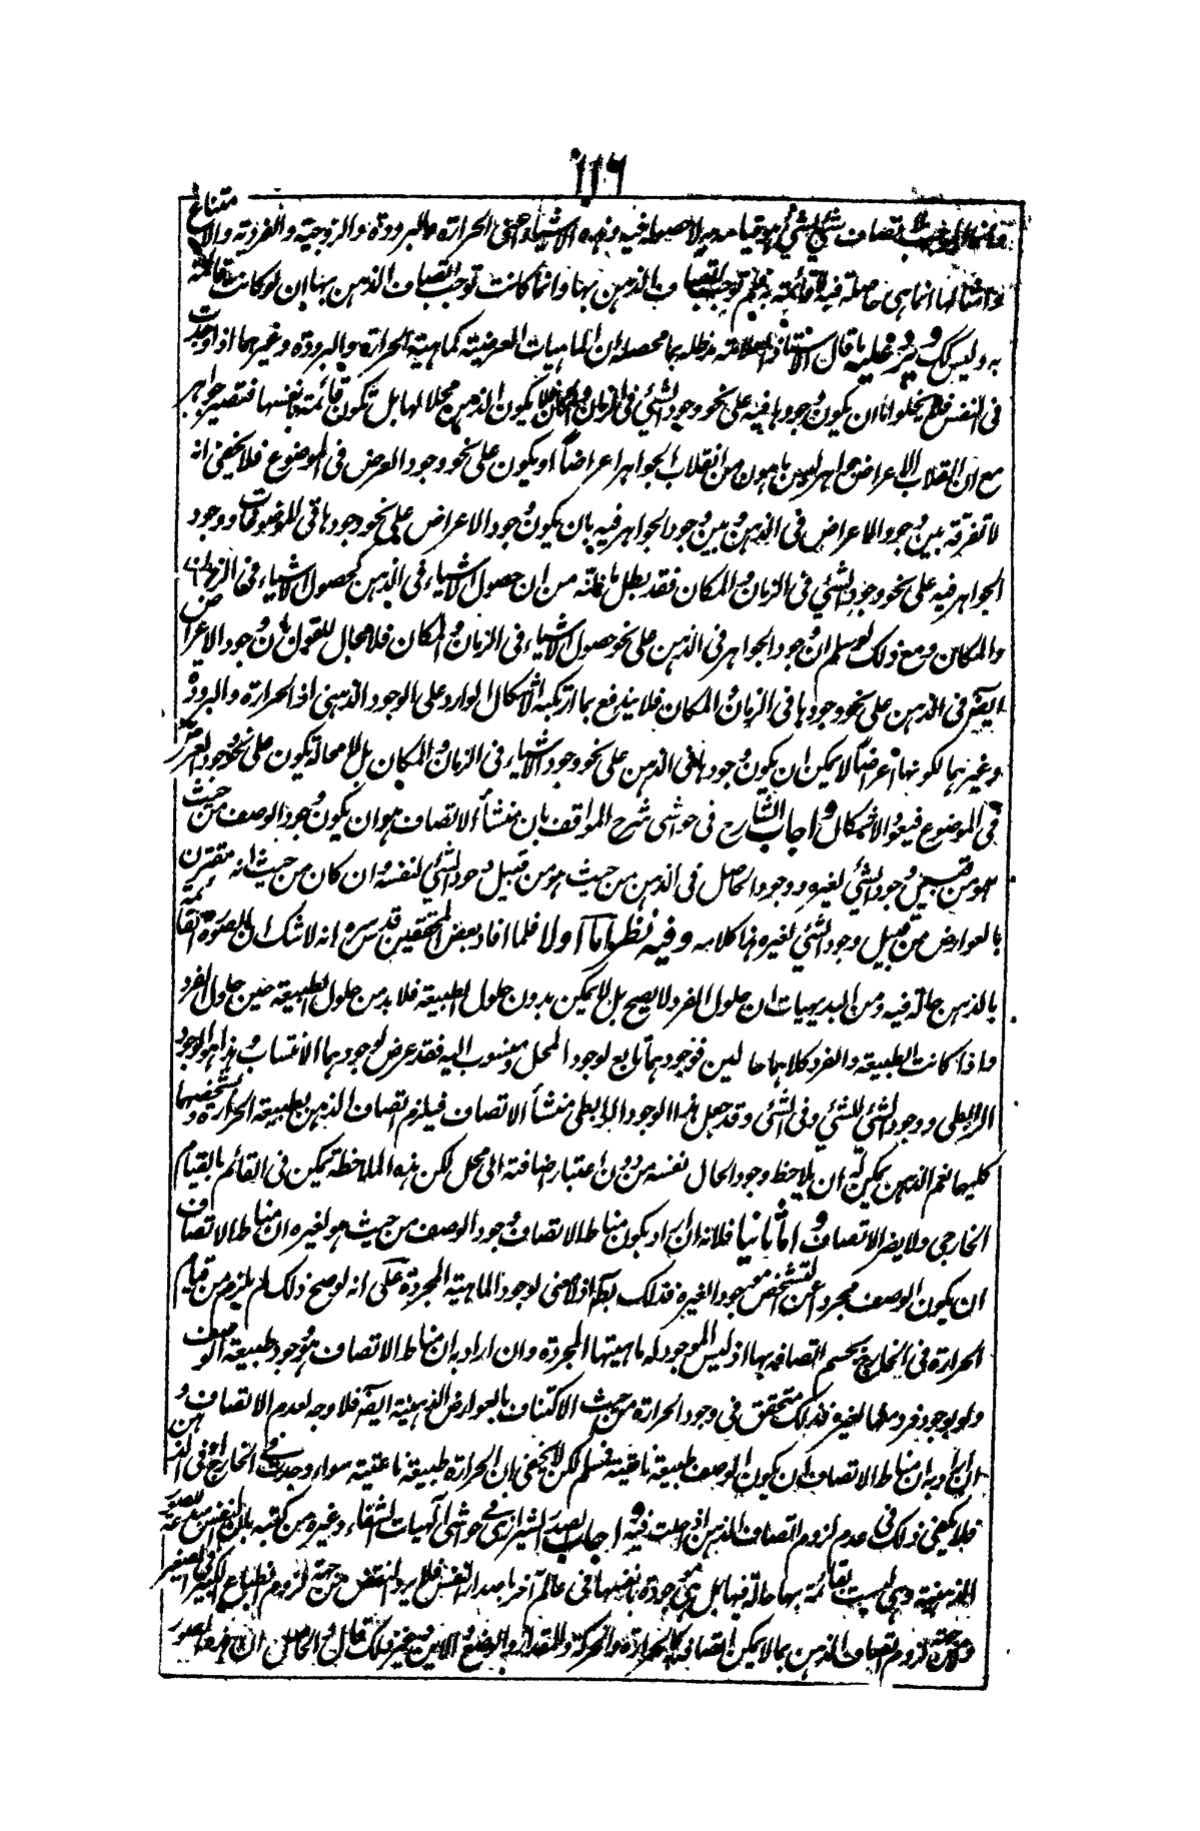 ١١٦
اتصاف شئ لشئ هو قيامه به لا حصوله فيه وهذه الاشياء اعنى الحرارة والبرودة والزوجية والفردية والامتناع
وامثالها انما هى حاصلة فيه لا قائمة به فلم توجب اتصاف الذهن بها وانما كانت توجب اتصاف الذهن بها ان لو كانت قائمة
به وليس كذلك ويرد عليه ما قال الاستاذ العلامة مدظله بما محصله ان الماهيات العرضية كماهية الحرارة والبرودة وغيرهما اذا وجدت
فى النفس فلم يخلو اما ان يكون وجودها فيه على نحو وجود الشئ فى الزمان والمكان فلا يكون الذهن محلا لها بل تكون قائمة بانفسها فتصير جواهر
مع ان انقلاب الاعراض جواهر ليس باهون من انقلاب الجواهر اعراضاً او يكون على نحو وجود العرض فى الموضوع فلا يخفى انه
لا تفرقة بين وجود الاعراض فى الذهن وبين وجود الجواهر فيه بان يكون وجود الاعراض على نحو وجودها فى الموضوعات ووجود
الجواهر فيه على نحو وجود الشئ فى الزمان والمكان فقد بطل ما ظنه من ان حصول الاشياء فى الذهن كحصول الاشياء فى الزمان
والمكان ومع ذلك لو سلم ان وجود الجواهر فى الذهن على نحو حصول الاشياء فى الزمان والمكان فلا مجال للقول بان وجود الاعراض
ايضا فى الذهن على نحو وجودها فى الزمان والمكان فلا يندفع بما ارتكبه الاشكال الوارد على الوجود الذهنى اذ الحرارة والبرودة
وغيرها لكونها اعراضاً لا يمكن ان يكون وجودها فى الذهن على نحو وجود الاشياء فى الزمان والمكان بل لا محالة يكون على نحو وجود العرض
فى الموضوع فيعود الاشكال واجاب الشارح فى حواشى شرح المواقف بان منشأ الاتصاف هو ان يكون وجود الوصف من حيث
هو من قبيل وجود الشئ لغيره ووجود الحاصل فى الذهن من حيث هو من قبيل وجود الشئ لنفسه وان كان من حيث انه مقترن
بالعوارض من قبيل وجود الشئ لغيره هذا كلامه وفيه نظر اما اولا فلما افاد بعض المحققين قدس سره انه لا شك ان الصورة القائمة
بالذهن حالة فيه ومن البديهيات ان حلول الفرد لا يصح بل لا يمكن بدون حلول الطبيعة فلابد من حلول الطبيعة حين حلول الفرد
واذا كانت الطبيعة والفرد كلاهما حالين فوجودهما تابع لوجود المحل ومنسوب اليه فقد عرض لوجودهما الانتساب وهذا هو الوجود
الرابطى ووجود الشئ للشئ وفى الشئ وقد جعل هذا الوجود الرابطى منشأ الاتصاف فيلزم اتصاف الذهن بطبيعة الحرارة وتشخصها
كليهما نعم الذهن يمكن له ان يلاحظ وجود الحال نفسه من دون اعتبار اضافته الى محل لكن هذه الملاحظة تمكن فى القائم بالقيام
الخارجى ولا يضر الاتصاف واما ثانيا فلانه ان اراد بكون مناط الاتصاف وجود الوصف من حيث هو لغيره ان مناط الاتصاف
ان يكون الوصف مجردا عن التشخص موجودا لغيره فذلك بط اذ لا معنى لوجود الماهية المجردة على انه لو صح ذلك لم يلزم من قيام
الحرارة فى الخارج بجسم اتصافه بها اذ ليس الموجود له ماهيتها المجردة وان اراد به ان مناط الاتصاف هو وجود طبيعة الوصف
ولو بوجود فرد منها لغيره فذلك متحقق فى وجود الحرارة من حيث الاكتناف بالعوارض الذهنية ايضا فلا وجه لعدم الاتصاف و
ان اراد به ان مناط الاتصاف ان يكون الوصف طبيعة ناعتية فمسلم لكن لا يخفى ان الحرارة طبيعة ناعتية سواء وجدت فى الخارج او فى الذهن
فلا يكفى ذلك فى عدم لزوم اتصاف الذهن اذا حلت فيه واجاب الصدر الشيرازى فى حواشى الهيات الشفاء وغيره من كتبه بان النفس مبدعة للصور
الذهنية وهى ليست قائمة بها حالة فيها بل هى موجودة بانفسها فى عالم آخر باصدار النفس فلا يرد النقض من جهة لزوم انطباع الكبير فى الصغير
ومن جهة لزوم اتصاف الذهن بما لا يمكن اتصافه به كالحرارة والحركة والمقدار والوضع والاين وغير ذلك قال والحاصل ان هذه الصور